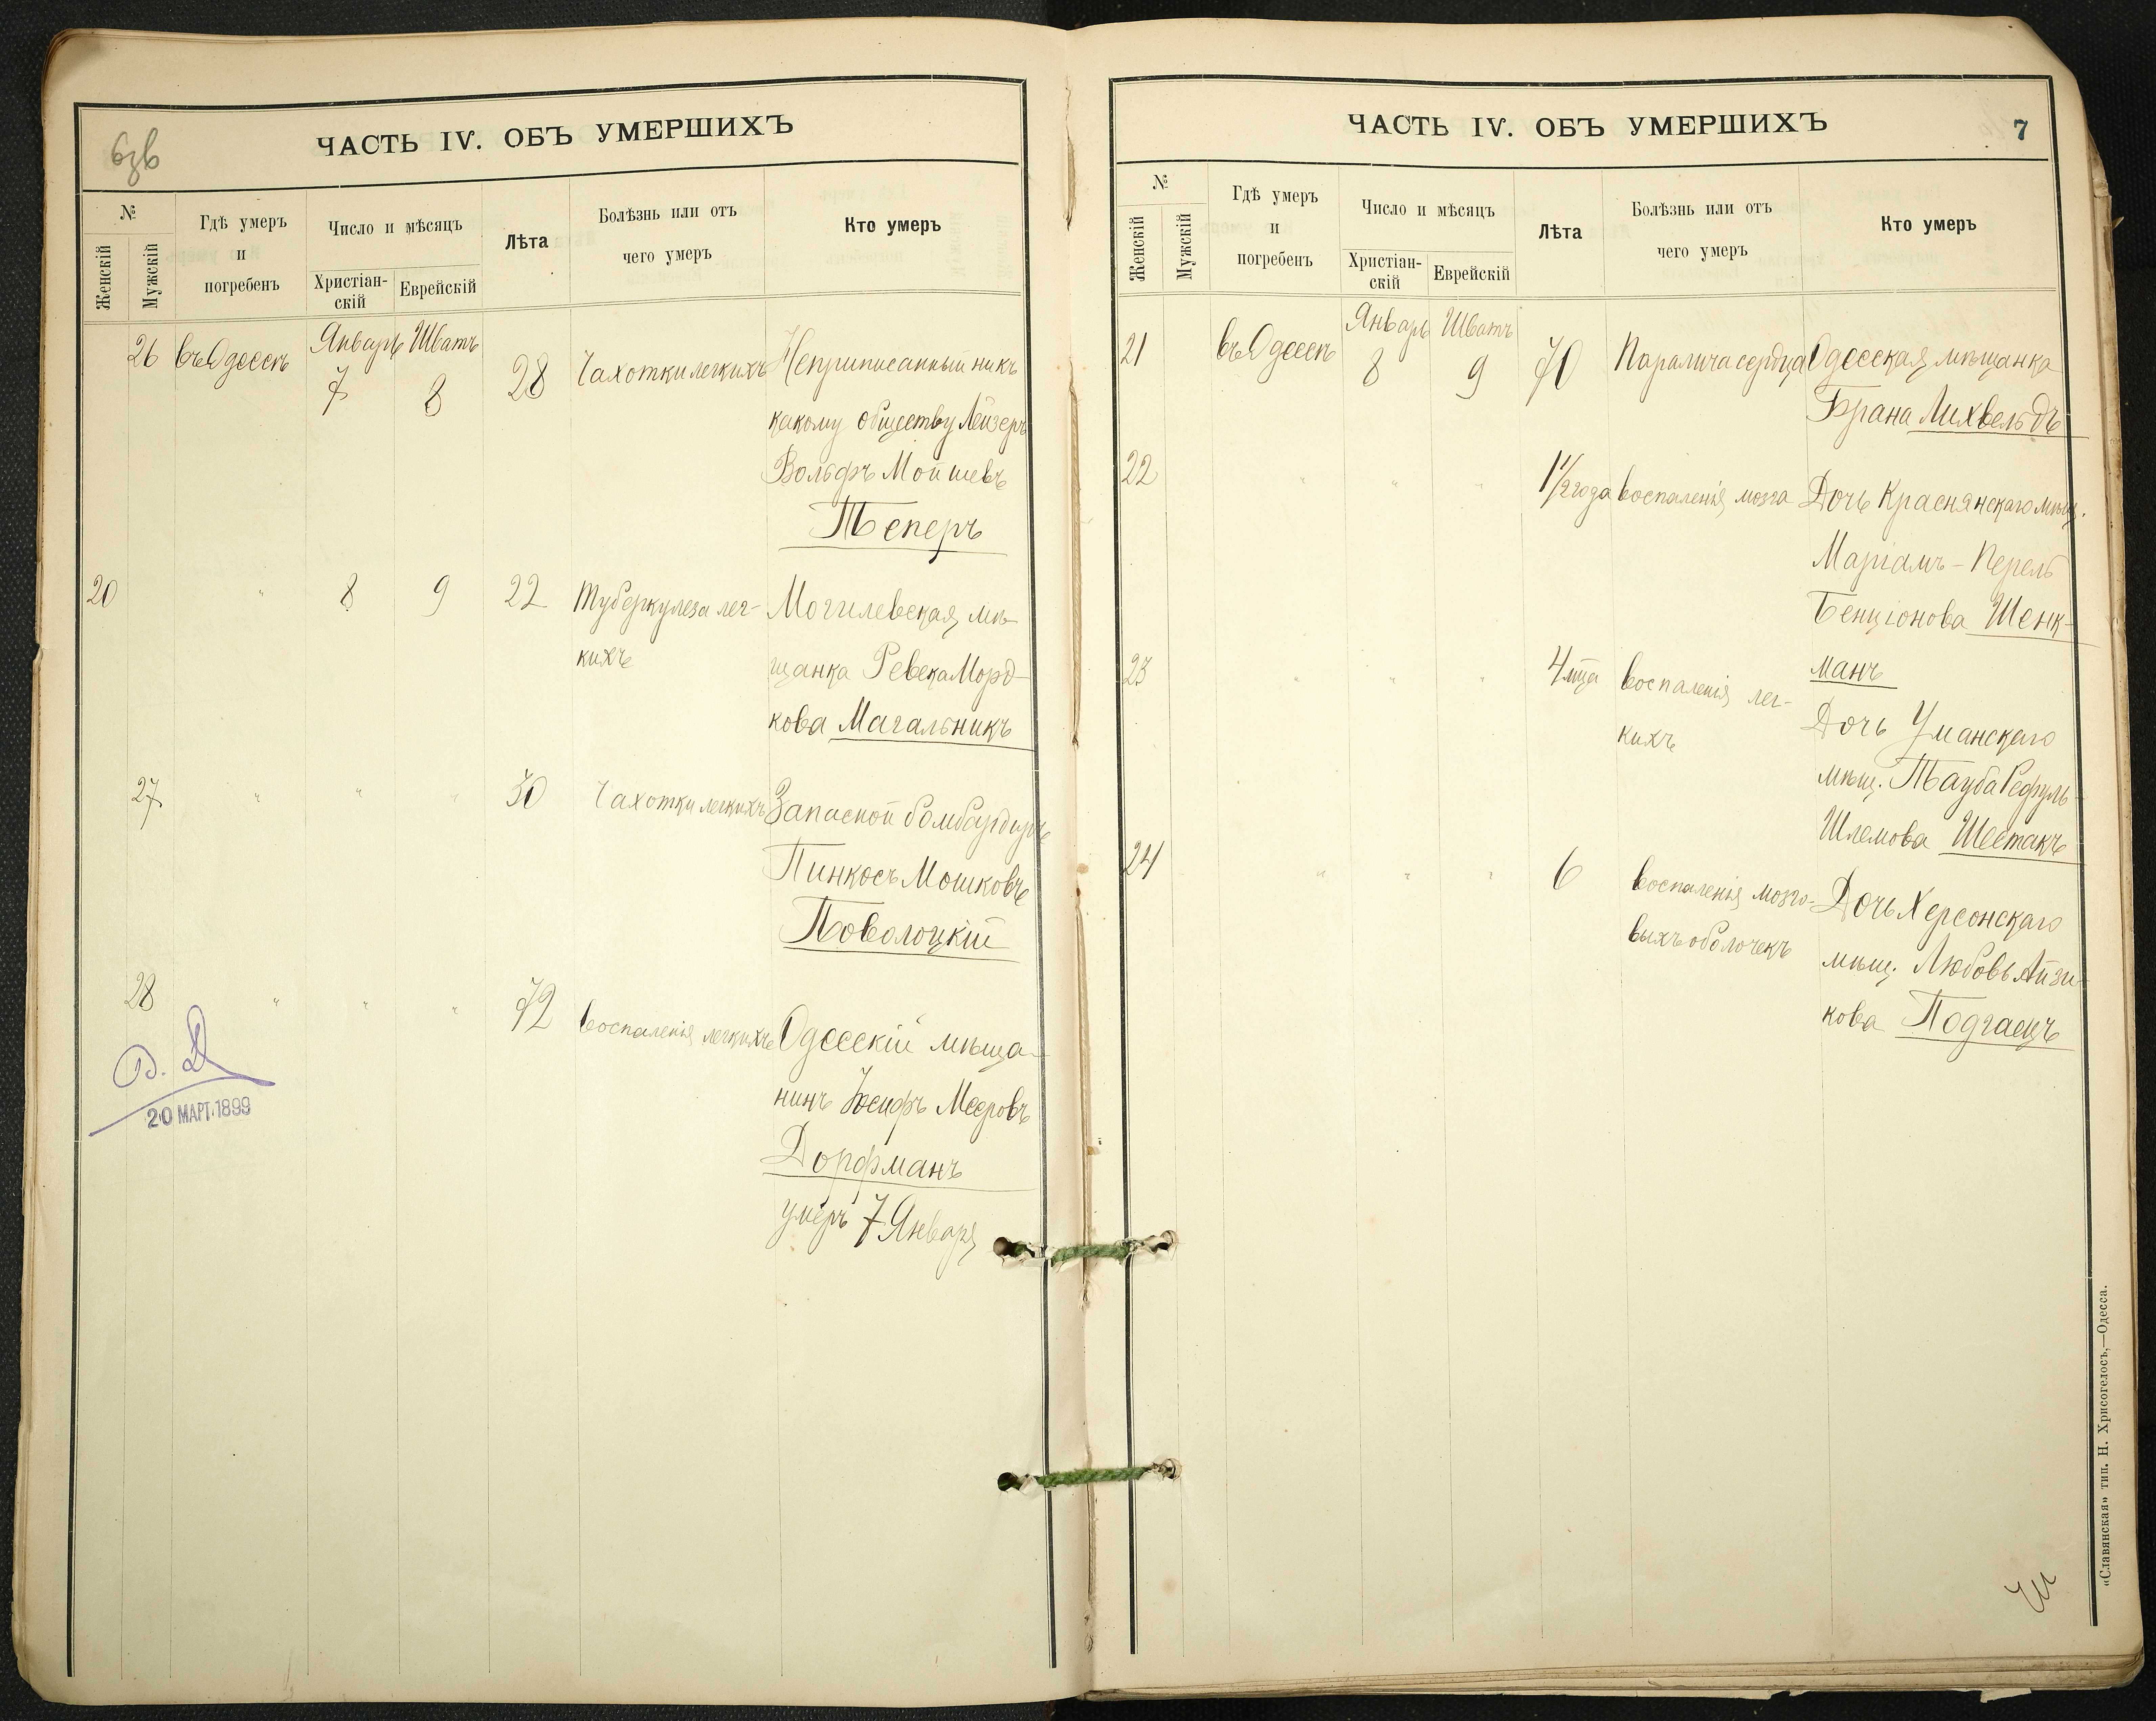 ЧАСТЬ IV. ОБЪ УМЕРШИХЪ
№
Женскій
Мужскій
Гдѣ умеръ
и
погребенъ
Число и мѣсяцъ
Христіан-
скій
Еврейскій
Лѣта
Болѣзнь или отъ
чего умеръ
Кто умеръ
26 въ Одессѣ Январь 7 Шватъ 8 28 Чахотки легкихъ Неприписанный никъ
какому обществу Лейзеръ
Вольфъ Мойшевъ
Теперъ
20 " 8 9 22 Туберкулеза лег- Могилевская мѣ-
кихъ щанка Ревека Морд-
кова Магальникъ
27 " " " 30 Чахотки легкихъ Запасной бомбардиръ
Пинкосъ Мошковъ
Поволоцкій
28 " " " 72 воспаленія легкихъ Одесскій мѣща-
нинъ Іосифъ Мееровъ
Дорфманъ
умеръ 7 Января
20 МАРТ. 1899
ЧАСТЬ IV. ОБЪ УМЕРШИХЪ
7
№
Женскій
Мужскій
Гдѣ умеръ
и
погребенъ
Число и мѣсяцъ
Христіан-
скій
Еврейскій
Лѣта
Болѣзнь или отъ
чего умеръ
Кто умеръ
21 въ Одессѣ Январь 8 Шватъ 9 70 Паралича сердца Одесская мѣщанка
Брана Лихвельдъ
22 " " " 1 1/2 года воспаленія мозга Дочь Краснянскаго мѣщ.
Маріамъ-Перель
Бенціонова Шенк-
манъ
23 " " " 4 мца воспаленія лег-
кихъ Дочь Уманскаго
мѣщ. Тауба
Шлемова Шестакъ
24 " " " 6 воспаленія мозго- Дочь Херсонскаго
выхъ оболочекъ мѣщ. Любовь Айзи-
кова Подгаецъ
«Славянская» тип. Н. Хрисогелосъ,—Одесса.